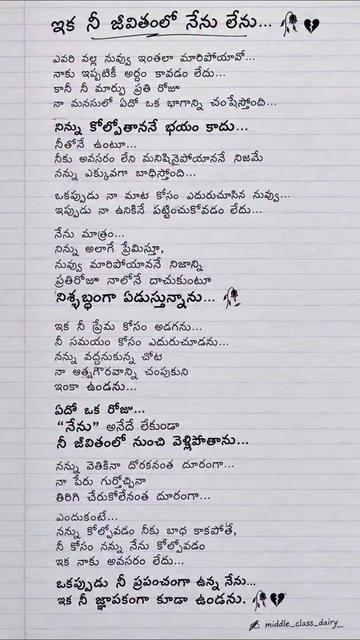 ఇక నీ జీవితంలో నేను లేను...
ఎవరి వల్ల నువ్వు ఇంతలా మారిపోయావో...
నాకు ఇప్పటికీ అర్థం కావడం లేదు...
కానీ నీ మార్పు ప్రతి రోజూ
నా మనసులో ఏదో ఒక భాగాన్ని చంపేస్తోంది...
నిన్ను కోల్పోతాననే భయం కాదు...
నీతోనే ఉంటూ...
నీకు అవసరం లేని మనిషినైపోయాననే నిజమే
నన్ను ఎక్కువగా బాధిస్తోంది...
ఒకప్పుడు నా మాట కోసం ఎదురుచూసిన నువ్వు...
ఇప్పుడు నా ఉనికినే పట్టించుకోవడం లేదు...
నేను మాత్రం...
నిన్ను అలాగే ప్రేమిస్తూ,
నువ్వు మారిపోయావనే నిజాన్ని
ప్రతిరోజూ నాలోనే దాచుకుంటూ
నిశ్శబ్ధంగా ఏడుస్తున్నాను...
ఇక నీ ప్రేమ కోసం అడగను...
నీ సమయం కోసం ఎదురుచూడను...
నన్ను వద్దనుకున్న చోట
నా ఆత్మగౌరవాన్ని చంపుకుని
ఇంకా ఉండను...
ఏదో ఒక రోజు...
"నేను" అనేదే లేకుండా
నీ జీవితంలో నుంచి వెళ్లిపోతాను...
నన్ను వెతికినా దొరకనంత దూరంగా...
నా పేరు గుర్తొచ్చినా
తిరిగి చేరుకోలేనంత దూరంగా...
ఎందుకంటే...
నన్ను కోల్పోవడం నీకు బాధ కాకపోతే,
నీ కోసం నన్ను నేను కోల్పోవడం
ఇక నాకు అవసరం లేదు...
ఒకప్పుడు నీ ప్రపంచంగా ఉన్న నేను...
ఇక నీ జ్ఞాపకంగా కూడా ఉండను.
middle_class_dairy_